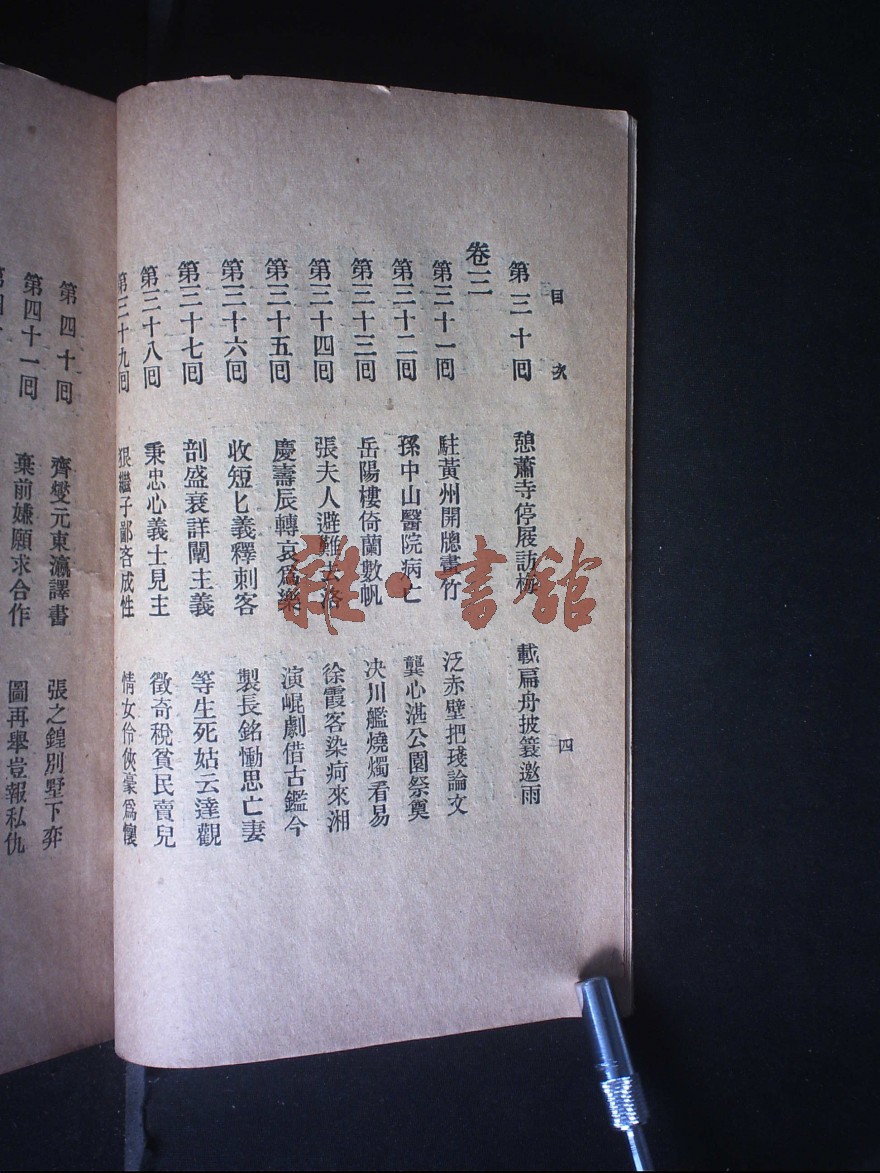 目次 四
第三十回 憩蕭寺停屐訪梅 載扁舟披簑邀雨
卷三
第三十一回 駐黃州開牕畫竹 泛赤壁把琖論文
第三十二回 孫中山醫院病亡 龔心湛公園祭奠
第三十三回 岳陽樓倚蘭數帆 决川艦燒燭看易
第三十四回 張夫人避難去洛 徐霞客染疴來湘
第三十五回 慶壽辰轉哀爲樂 演崐劇借古鑑今
第三十六回 收短匕義釋刺客 製長銘慟思亡妻
第三十七回 剖盛衰詳闡主義 等生死姑云達觀
第三十八回 秉忠心義士見主 徵奇稅貧民賣兒
第三十九回 狠繼子鄙吝成性 情女伶俠豪爲懷
第四十回 齊燮元東瀛譯書 張之鍠別墅下弈
第四十一回 棄前嫌願求合作 圖再舉豈報私仇
雜·書館